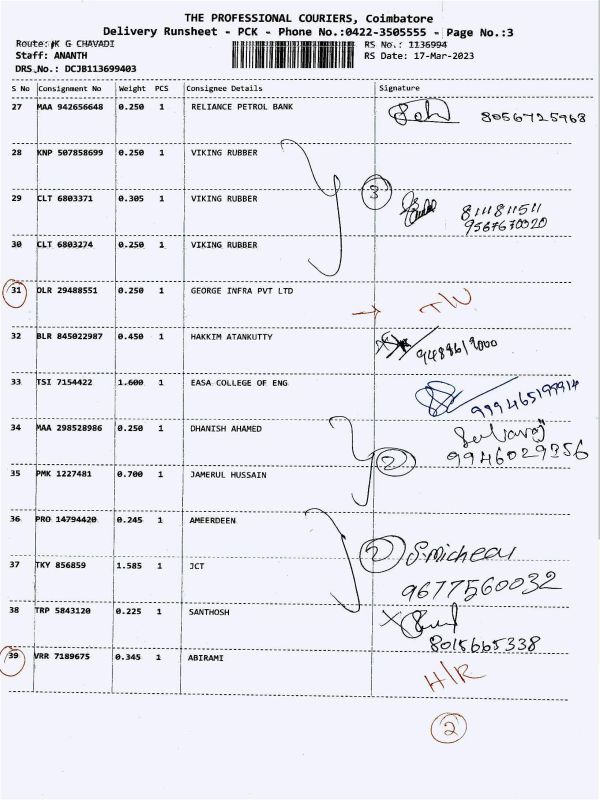 THE PROFESSIONAL COURIERS, Coimbatore
Delivery Runsheet - PCK - Phone No.:0422-3505555 - Page No.:3
Route: K G CHAVADI RS No.: 1136994
Staff: ANANTH RS Date: 17-Mar-2023
DRS.No.: DCJB113699403
S No Consignment No Weight PCS Consignee Details Signature
27 MAA 942656648 0.250 1 RELIANCE PETROL BANK 8056725968
28 KNP 507858699 0.250 1 VIKING RUBBER
29 CLT 6803371 0.305 1 VIKING RUBBER 3 8111811511
9567670020
30 CLT 6803274 0.250 1 VIKING RUBBER
31 DLR 29488551 0.250 1 GEORGE INFRA PVT LTD
32 BLR 845022987 0.450 1 HAKKIM ATANKUTTY
33 TSI 7154422 1.600 1 EASA COLLEGE OF ENG
34 MAA 298528986 0.250 1 DHANISH AHAMED 2 9946029356
35 PMK 1227481 0.700 1 JAMERUL HUSSAIN
36 PRO 14794420 0.245 1 AMEERDEEN
2 S.Micheal
37 TKY 856859 1.585 1 JCT 9677560032
38 TRP 5843120 0.225 1 SANTHOSH
8015665338
39 VRR 7189675 0.345 1 ABIRAMI H/R
2